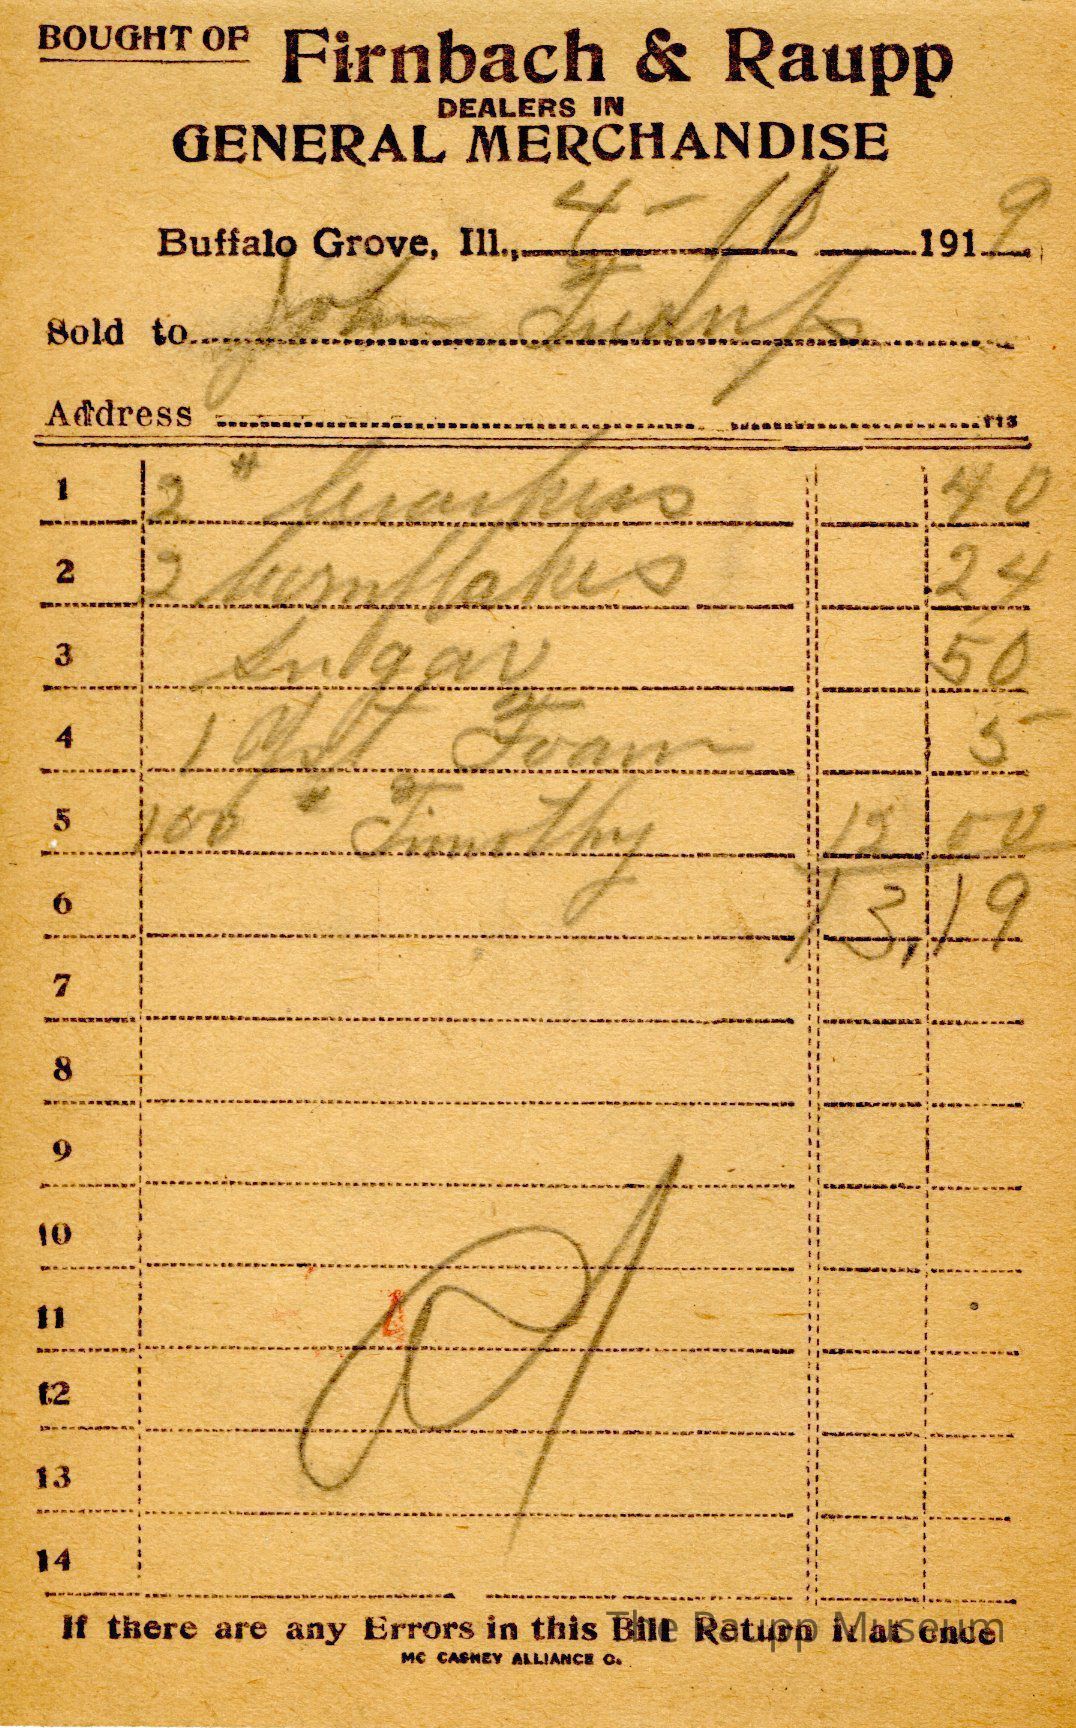 BOUGHT OF Firnbach & Raupp
DEALERS IN
GENERAL MERCHANDISE
Buffalo Grove, Ill., 4-18 1919
Sold to John
Address
1 2 # Crackers 40
2 2 Cornflakes 24
3 Sugar 50
4 1 Yst Foam 5
5 100 # Timothy 12 00
6 13,19
7
8
9
10
11
12
13
14
If there are any Errors in this Bill Return it at once
The Raupp Museum
MC CASKEY ALLIANCE O.